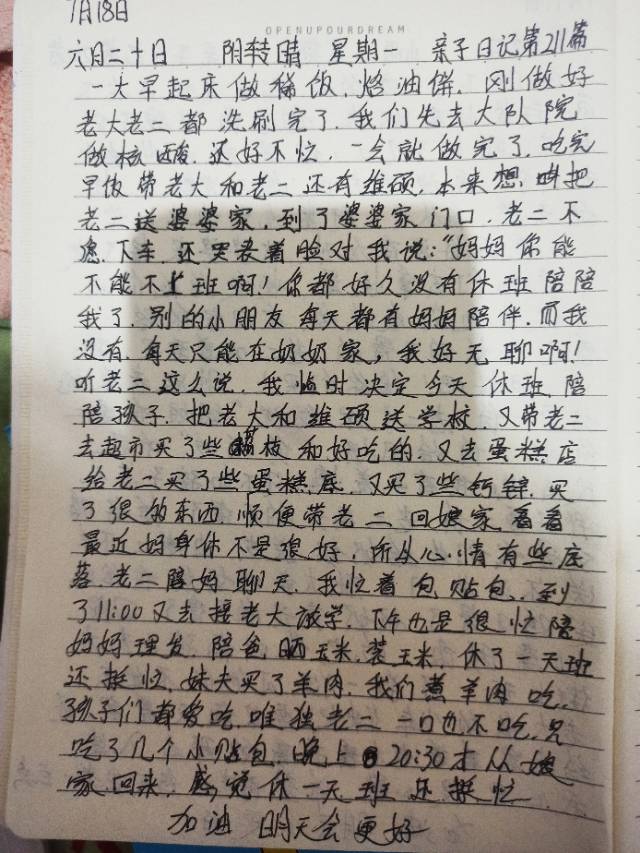 7月18日
OPENUPOURDREAM
六月二十日 阴转晴 星期一 亲子日记第211篇
一大早起床做稀饭,烙油饼,刚做好
老大老二都洗刷完了,我们先去大队院
做核酸,还好不忙,一会就做完了,吃完
早饭带老大和老二还有维硕,本来想把
老二送婆婆家,到了婆婆家门口,老二不
愿下车,还哭丧着脸对我说:"妈妈你能
不能不上班啊!你都好久没有休班陪陪
我了,别的小朋友每天都有妈妈陪伴,而我
没有,每天只能在奶奶家,我好无聊啊!
听老二这么说,我临时决定今天休班陪
陪孩子,把老大和维硕送学校,又带老二
去超市买了些 和好吃的,又去蛋糕店
给老二买了些蛋糕底,又买了些钙锌,买
了很多东西,顺便带老二回娘家看看
最近妈身体不是很好,所以心情有些底
落,老二陪妈聊天,我忙着包贴包,到
了11:00又去接老大放学,下午也是很忙陪
妈妈理发,陪爸晒玉米,装玉米,休了一天班
还挺忙,妹夫买了羊肉,我们煮羊肉吃,
孩子们都爱吃,唯独老二一口也不吃,只
吃了几个小贴包,晚上20:30才从娘
家回来,感觉休一天班还挺忙
加油 明天会更好